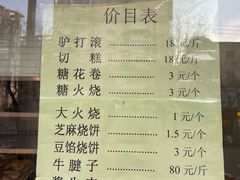 价目表
驴打滚 ............ 18 元/斤
切糕 ............ 18 元/斤
糖花卷 ............ 3 元/个
糖火烧 ............ 3 元/个
大火烧 ............ 1 元/个
芝麻烧饼 ............ 1.5 元/个
豆馅烧饼 ............ 3 元/个
牛腱子 ............ 80 元/斤